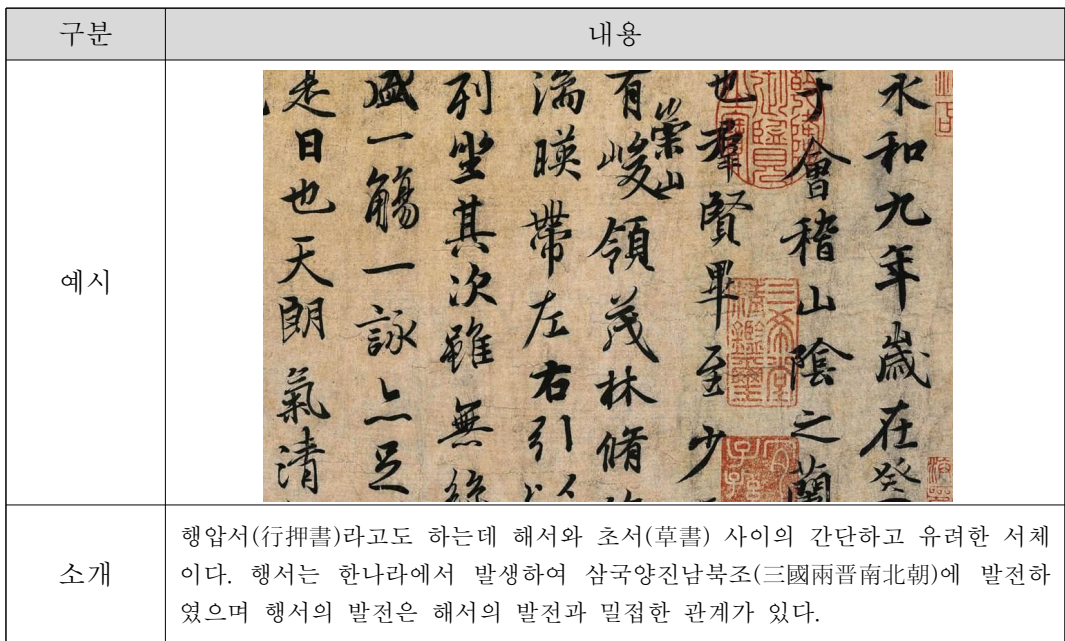 구분 내용
예시
永和九年歲在癸
于會稽山陰之蘭
也羣賢畢至少
有崇山峻領茂林脩
湍暎帶左右引以
列坐其次雖無絲
盛一觴一詠亦足
是日也天朗氣清
三希堂
精鑑璽
소개
행압서(行押書)라고도 하는데 해서와 초서(草書) 사이의 간단하고 유려한 서체
이다. 행서는 한나라에서 발생하여 삼국양진남북조(三國兩晋南北朝)에 발전하
였으며 행서의 발전은 해서의 발전과 밀접한 관계가 있다.